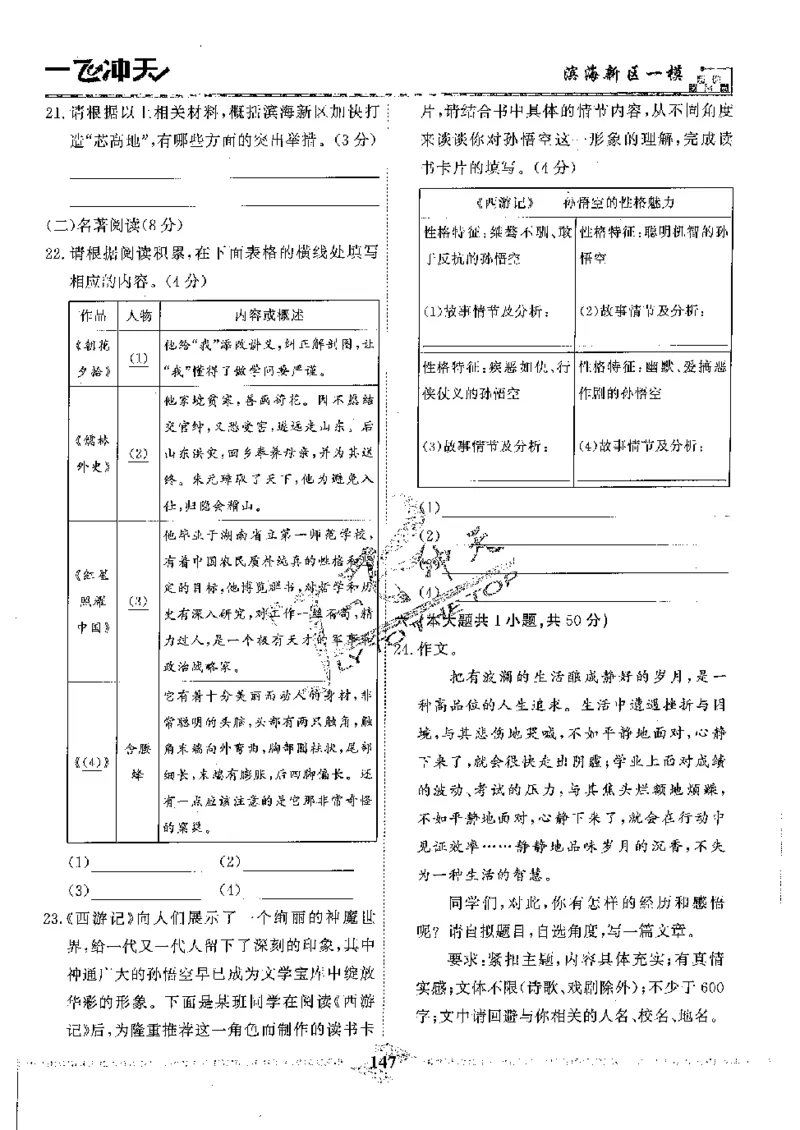 一飞冲天
滨海新区一模
21.请根据以上相关材料,概括滨海新区加快打
造“芯高地”,有哪些方面的突出举措。(3分)
(二)名著阅读(8分)
22.请根据阅读积累,在下面表格的横线处填写
相应的内容。(4分)
作品 人物 内容或概述
《朝花
夕拾》
(1)
他给“我”添改讲义,纠正解剖图,让
“我”懂得了做学问要严谨。
《儒林
外史》
(2)
他家境贫寒,善画荷花。因不愿结
交官绅,又恐受害,遂远走山东。后
山东洪灾,回乡奉养母亲,并为其送
终。朱元璋取了天下,他为避免入
仕,归隐会稽山。
《红星
照耀
中国》
(3)
他毕业于湖南省立第一师范学校,
有着中国农民质朴纯真的性格和
定的目标,他博览群书,对哲学和历
史有深入研究,对工作一丝不苟,精
力过人,是一个极有天才的军事和
政治战略家。
《(4)》
合腰
蜂
它有着十分美丽而动人的身材,非
常聪明的头脑,头部有两只触角,触
角末端向外弯曲,胸部圆柱状,尾部
细长,末端有膨胀,后四脚偏长。还
有一点应该注意的是它那非常奇怪
的窠巢。
(1) (2)
(3) (4)
23.《西游记》向人们展示了一个绚丽的神魔世
界,给一代又一代人留下了深刻的印象,其中
神通广大的孙悟空早已成为文学宝库中绽放
华彩的形象。下面是某班同学在阅读《西游
记》后,为隆重推荐这一角色而制作的读书卡
片,请结合书中具体的情节内容,从不同角度
来谈谈你对孙悟空这一形象的理解,完成读
书卡片的填写。(4分)
《西游记》 孙悟空的性格魅力
性格特征:桀骜不驯、敢
于反抗的孙悟空
(1)故事情节及分析:
性格特征:聪明机智的孙
悟空
(2)故事情节及分析:
性格特征:疾恶如仇、行
侠仗义的孙悟空
(3)故事情节及分析:
性格特征:幽默、爱搞恶
作剧的孙悟空
(4)故事情节及分析:
(1)
(2)
(3)
(4)
六、(本大题共1小题,共50分)
24.作文。
把有波澜的生活酿成静好的岁月,是一
种高品位的人生追求。生活中遭遇挫折与困
境,与其悲伤地哭喊,不如平静地面对,心静
下来了,就会很快走出阴霾;学业上面对成绩
的波动、考试的压力,与其焦头烂额地烦躁,
不如平静地面对,心静下来了,就会在行动中
见证效率……静静地品味岁月的沉香,不失
为一种生活的智慧。
同学们,对此,你有怎样的经历和感悟
呢?请自拟题目,自选角度,写一篇文章。
要求:紧扣主题,内容具体充实;有真情
实感;文体不限(诗歌、戏剧除外);不少于600
字;文中请回避与你相关的人名、校名、地名。
147